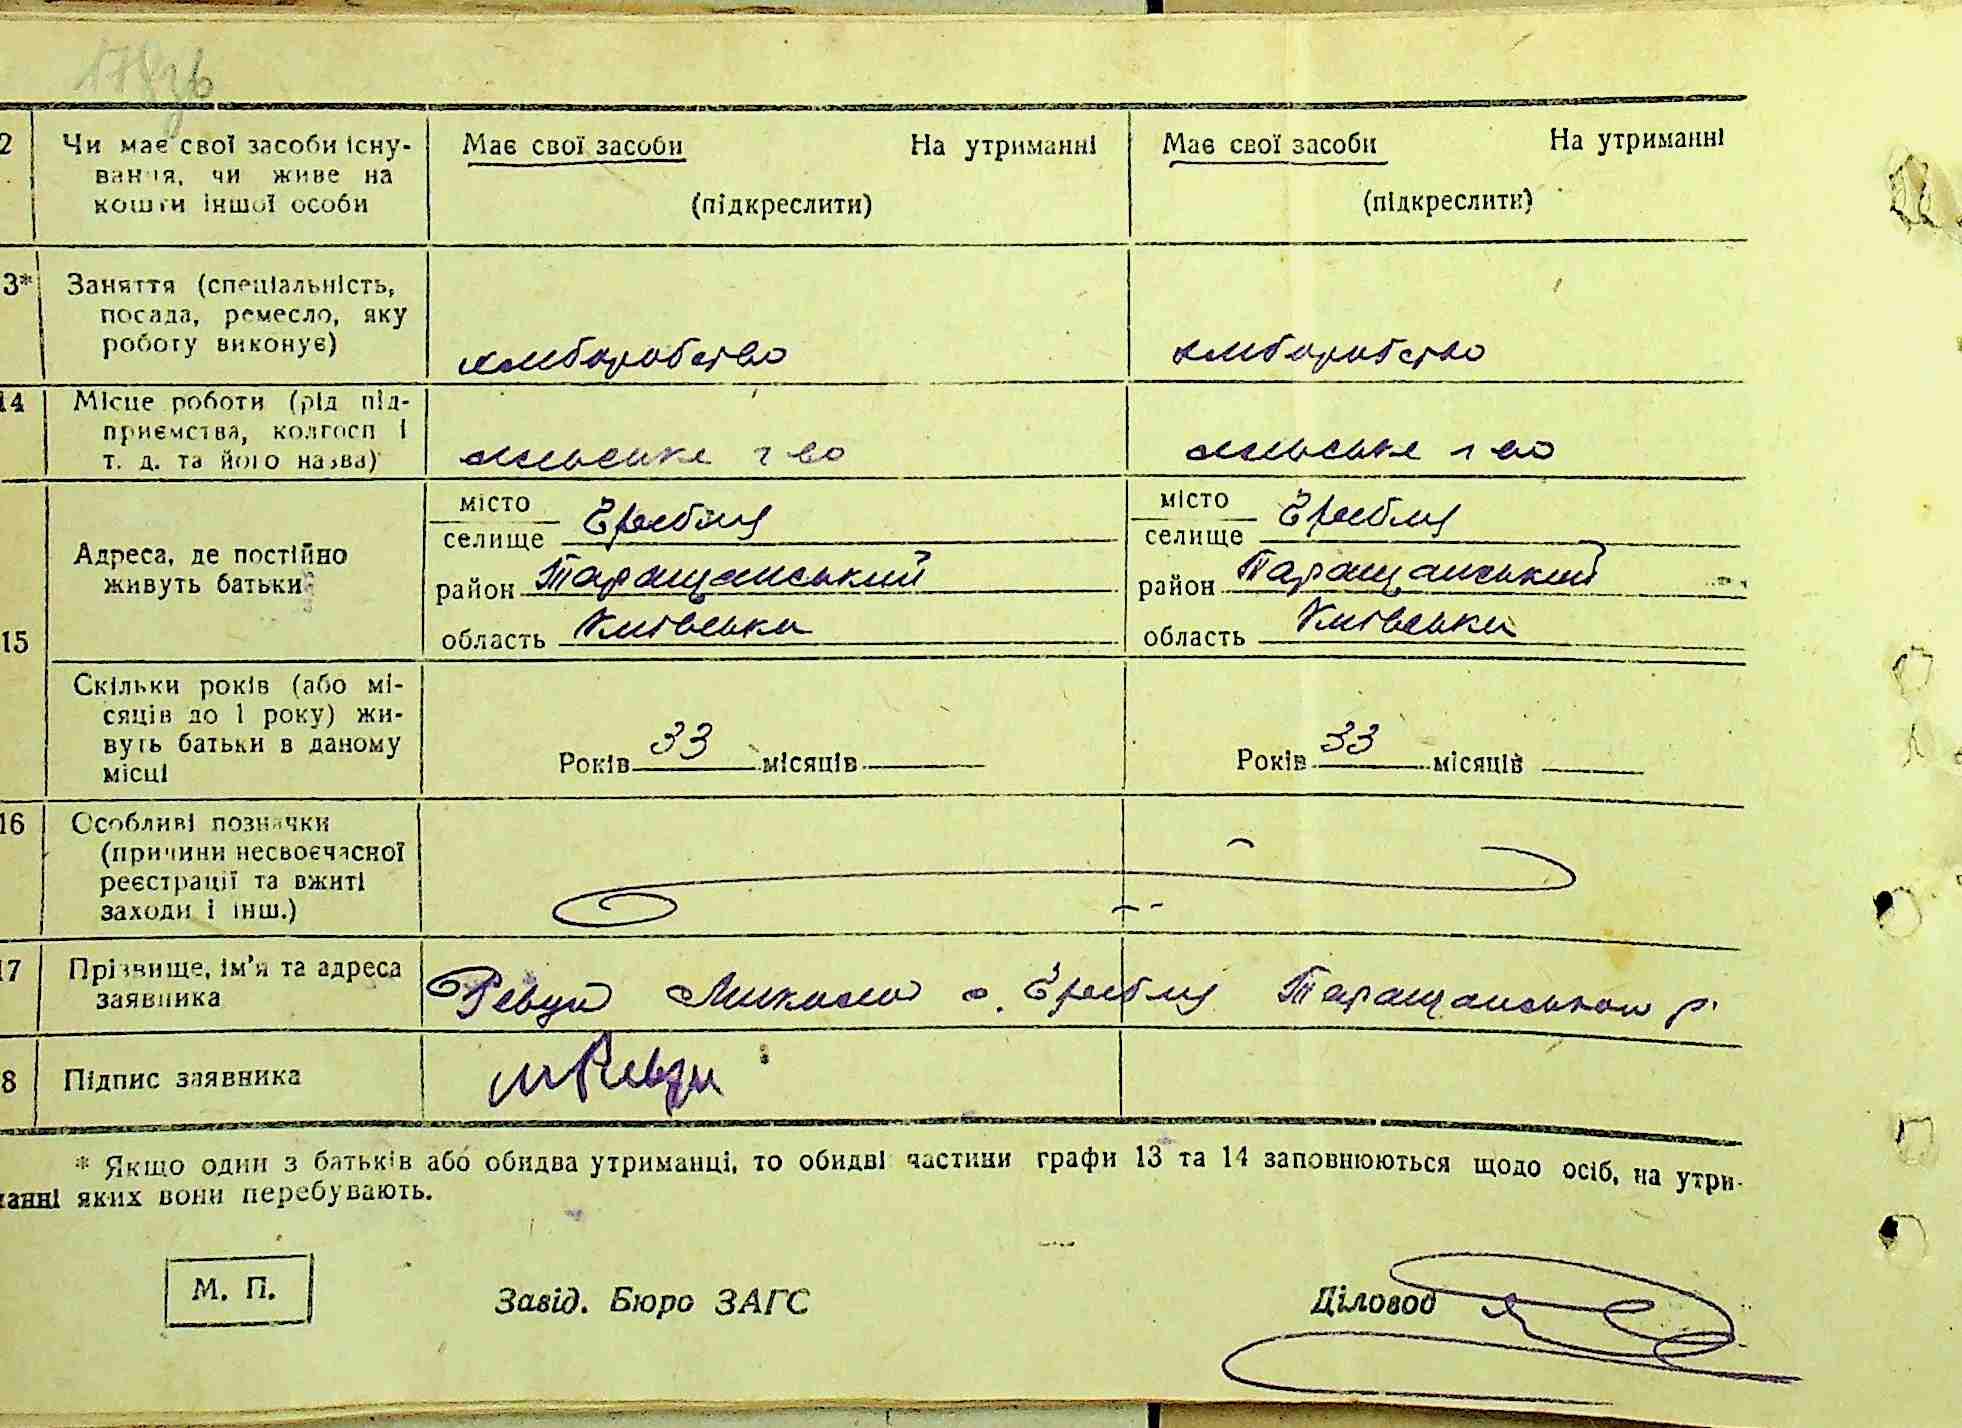 2 Чи має свої засоби існу-
вання, чи живе на
кошти іншої особи
Має свої засоби На утриманні
(підкреслити)
Має свої засоби На утриманні
(підкреслити)
3* Заняття (спеціальність,
посада, ремесло, яку
роботу виконує)
хліборобство
хліборобство
14 Місце роботи (рід під-
приємства, колгосп і
т. д. та його назва)
сільське г во
сільське г во
15 Адреса, де постійно
живуть батьки
місто
селище Гребля
район Таращанський
область Київська
місто
селище Гребля
район Таращанський
область Київська
Скільки років (або мі-
сяців до 1 року) жи-
вуть батьки в даному
місці
Років 33 місяців
Років 33 місяців
16 Особливі позначки
(причини несвоєчасної
реєстрації та вжиті
заходи і інш.)
17 Прізвище, ім'я та адреса
заявника
Ревун Микола с. Гребля Таращанського р.
8 Підпис заявника
* Якщо один з батьків або обидва утриманці, то обидві частини графи 13 та 14 заповнюються щодо осіб, на утри-
манні яких вони перебувають.
М. П.
Завід. Бюро ЗАГС
Діловод